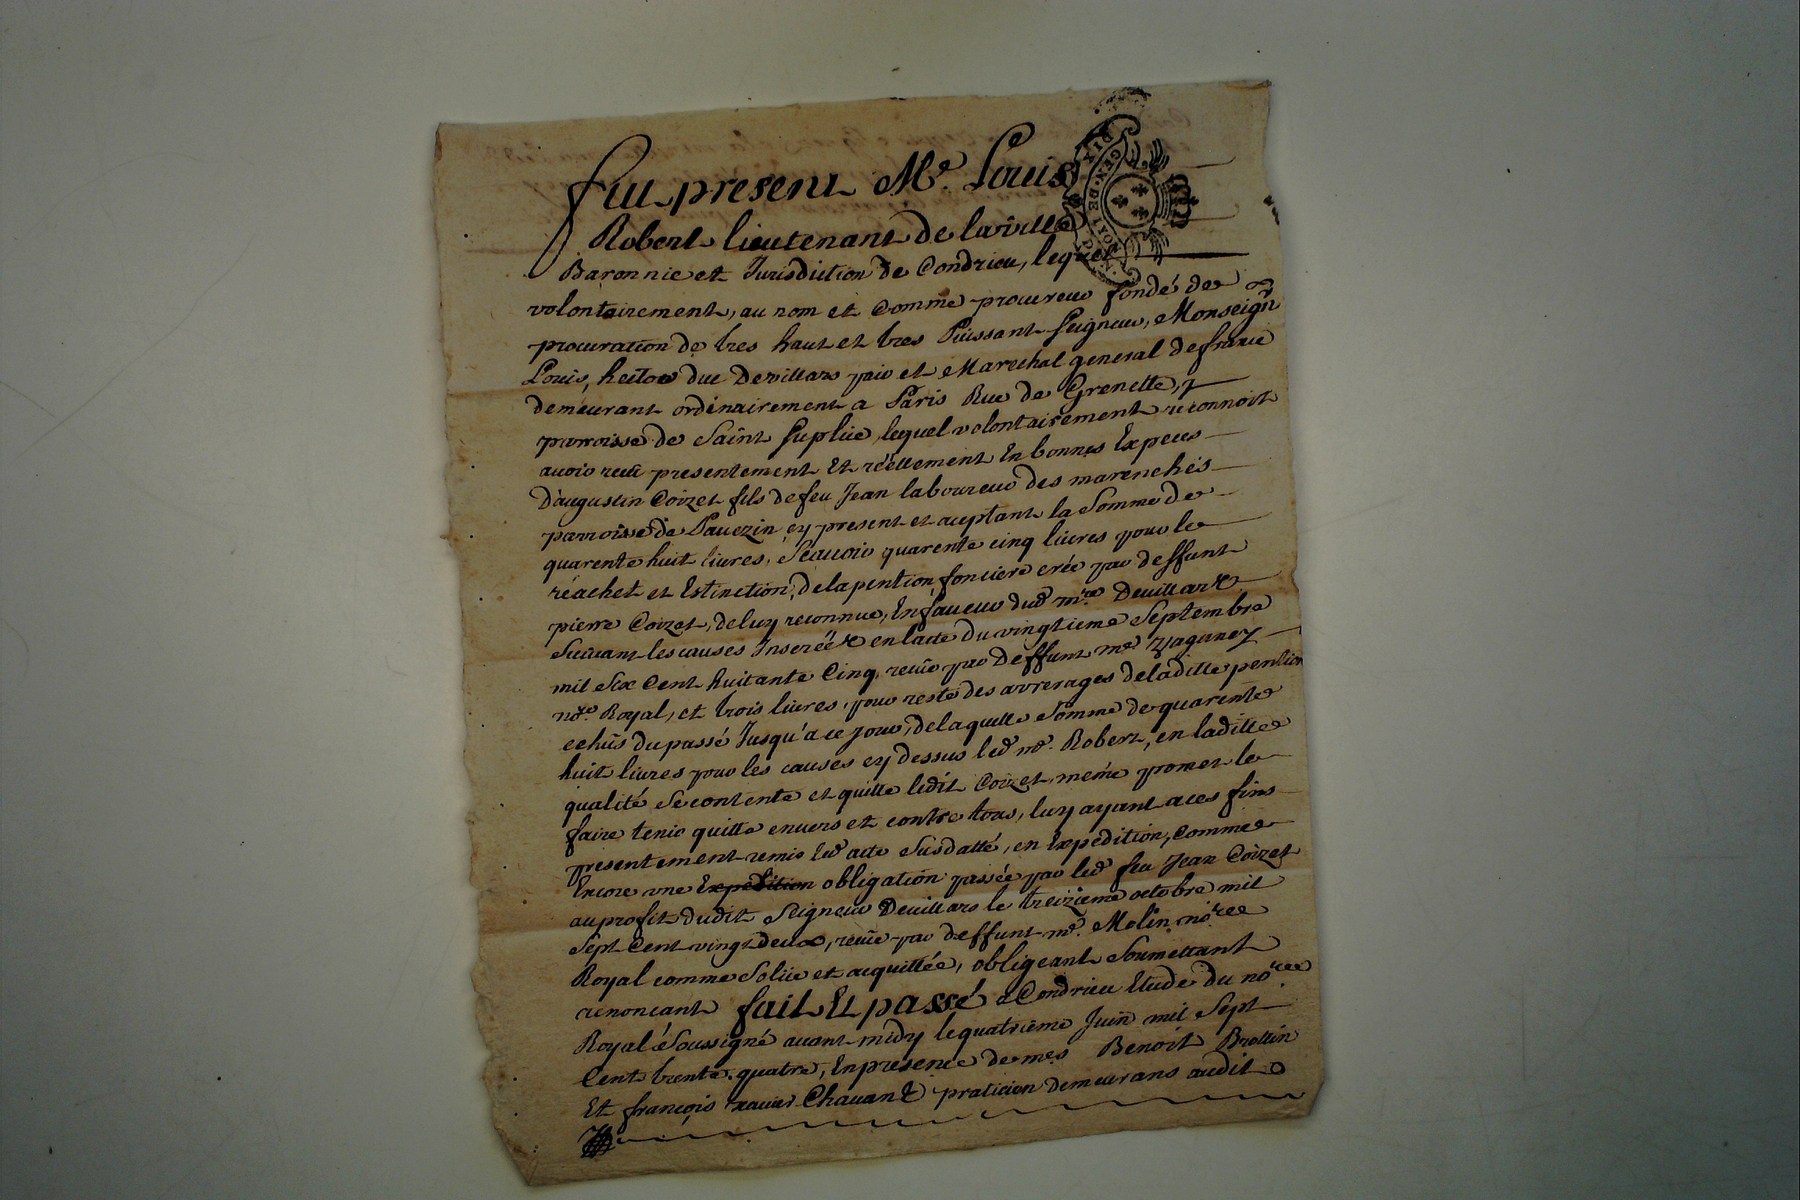 fut present Me. Louis
Robert lieutenant de la ville
Baronnie et Jurisdiction de Condrieu, lequel
volontairement, au nom et comme procureur fondé de
procuration de tres haut et tres Puissant Seigneur, Monseigr
Louis, hector duc Devillars pair et Marechal general de france
demeurant ordinairement a Paris Rue de Grenelle,
parroisse de Saint Suplice, lequel volontairement reconnoit
avoir receu presentement Et réellement En bonnes Expeces
D'augustin Coizet fils de feu Jean laboureur des marenches
parroisse de Pavezin cy present et aceptant la Somme de
quarente huit livres, Scauoir quarente cinq livres pour le
réachet et Estinction, de la pention fonciere crée par deffunt
pierre Coizet, de luy reconnue, En faueur dud mre. Devillars
Suivant les causes Inserées en lacte du vingtieme Septembre
mil Six Cent huitante Cinq, receu par Deffunt me
nore. Royal, et trois livres, pour reste des arrerages de ladille pention
echus du passé Jusqu'à ce jour, de laquelle Somme de quarente
huit livres pour les causes cy dessus led me. Robert, en laditte
qualité Se contente et quitte ledit Coizet, meme promet le
faire tenir quitte envers et contre tous, luy ayant a ces fins
presentement remis led acte Susdatté, en Expedition, comme
Encore une Expedition obligation passée par led feu Jean Coizet
au profit dudit Seigneur Deuillars le treizieme octobre mil
Sept Cent vingt deux, receue par deffunt me. Molin nore
Royal comme Solue et acquittée, obligeant Soumettant
renoncant fait Et passé a Condrieu Etude du nore.
Royal Soussigné avant midy le quatrieme Juin mil Sept
Cent trente quatre, En presence de mes Benoit Brottin
Et françois xavier Chavan praticien demeurans audit